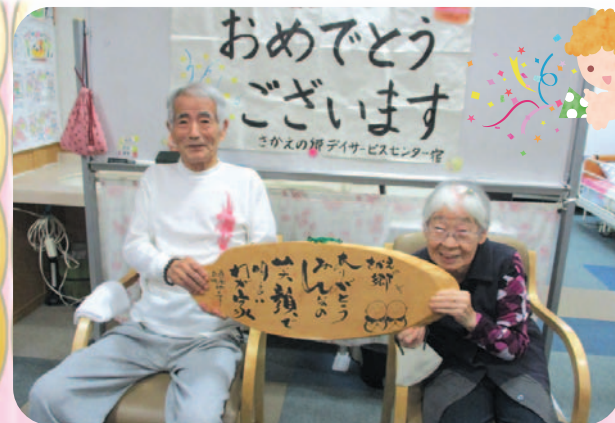 おめでとう
ございます
さかえの郷デイサービスセンター宿
ありがとう
みんなの
笑顔で
明るい
わが家